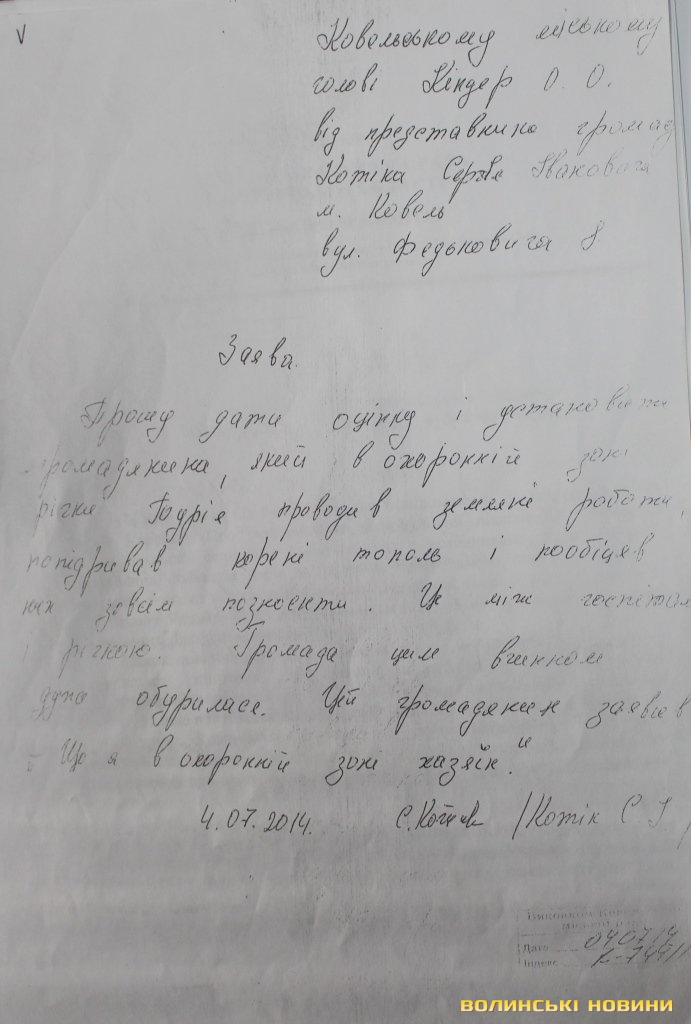 V
Ковельському міському
голові Кіндер О. О.
від представника громад
Котіка Сергія Івановича
м. Ковель
вул. Федьковича 8
Заява.
Прошу дати оцінку і установити
громадянина, який в охоронній зоні
річки Турія проводив земляні роботи,
попідривав корені тополь і пообіцяв
їх зовсім позносити. Це між госпіталем
і річкою. Громада цим вчинком
дуже обурилася. Цей громадянин заявив
" Що я в охоронній зоні хазяїн."
4.07.2014. С.Котік /Котік С І /
Виконком Ковел
міської ради
Дата 040714
Індекс К-744/
ВОЛИНСЬКІ НОВИНИ